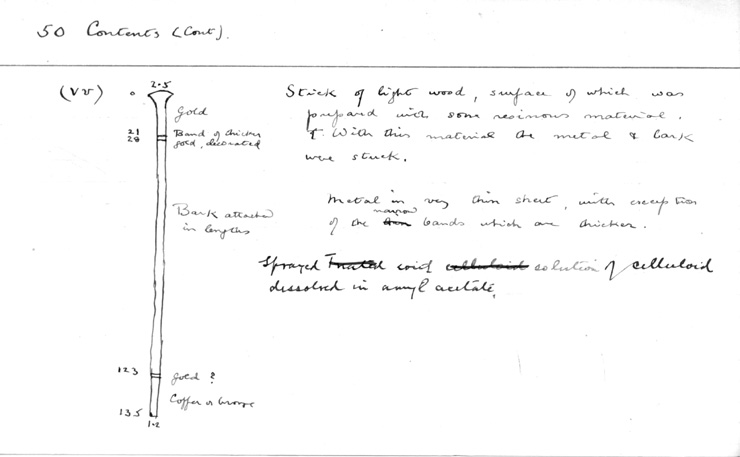 50 Contents (Cont).
(VV)
0
2.5
Gold
21
28
Band of thicker
gold, decorated
Bark attached
in lengths
123
Gold ?
Copper or bronze
135
1.2
Stick of light wood, surface of which was
prepared with some resinous material.
With this material the metal & bark
were stuck.
Metal in very thin sheet, with exception
of the narrow bands which are thicker.
Sprayed Treated with celluloid solution of celluloid
dissolved in amyl acetate.